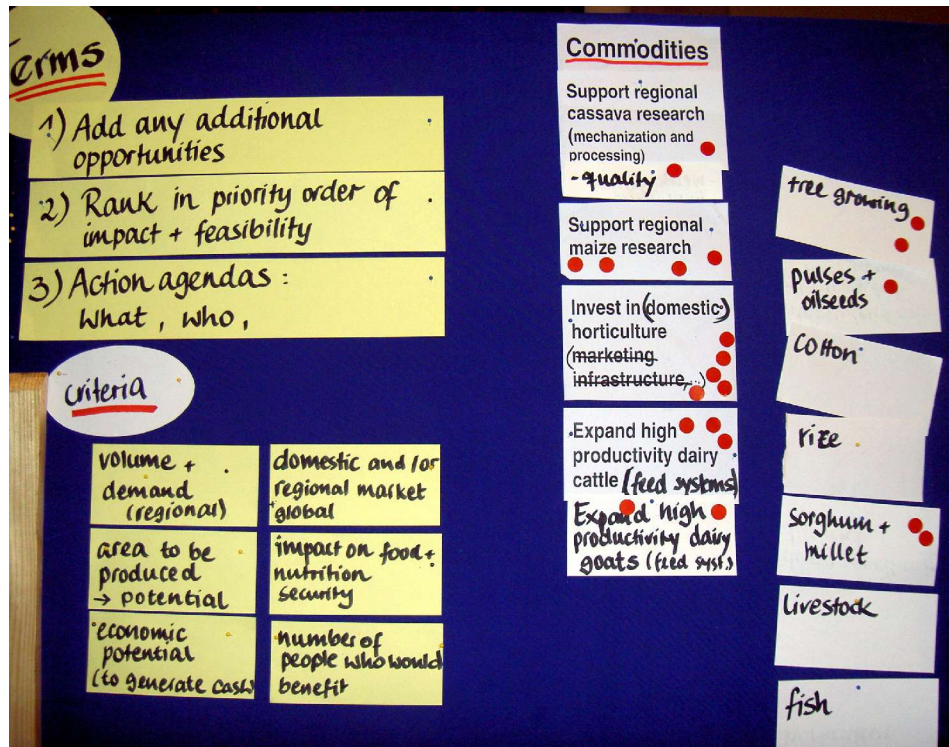 Terms
1) Add any additional
opportunities
2) Rank in priority order of
impact + feasibility
3) Action agendas :
What , who ,
criteria
volume +
demand
(regional)
domestic and /or
regional market
global
area to be
produced
→ potential
impact on food +
nutrition
security
economic
potential
(to generate cash)
number of
people who would
benefit
Commodities
Support regional
cassava research
(mechanization and
processing)
- quality
Support regional
maize research
Invest in (domestic)
horticulture
(marketing
infrastructure,...)
Expand high
productivity dairy
cattle (feed systems)
Expand high
productivity dairy
goats (feed syst.)
tree growing
pulses +
oilseeds
cotton
rize
sorghum +
millet
livestock
fish